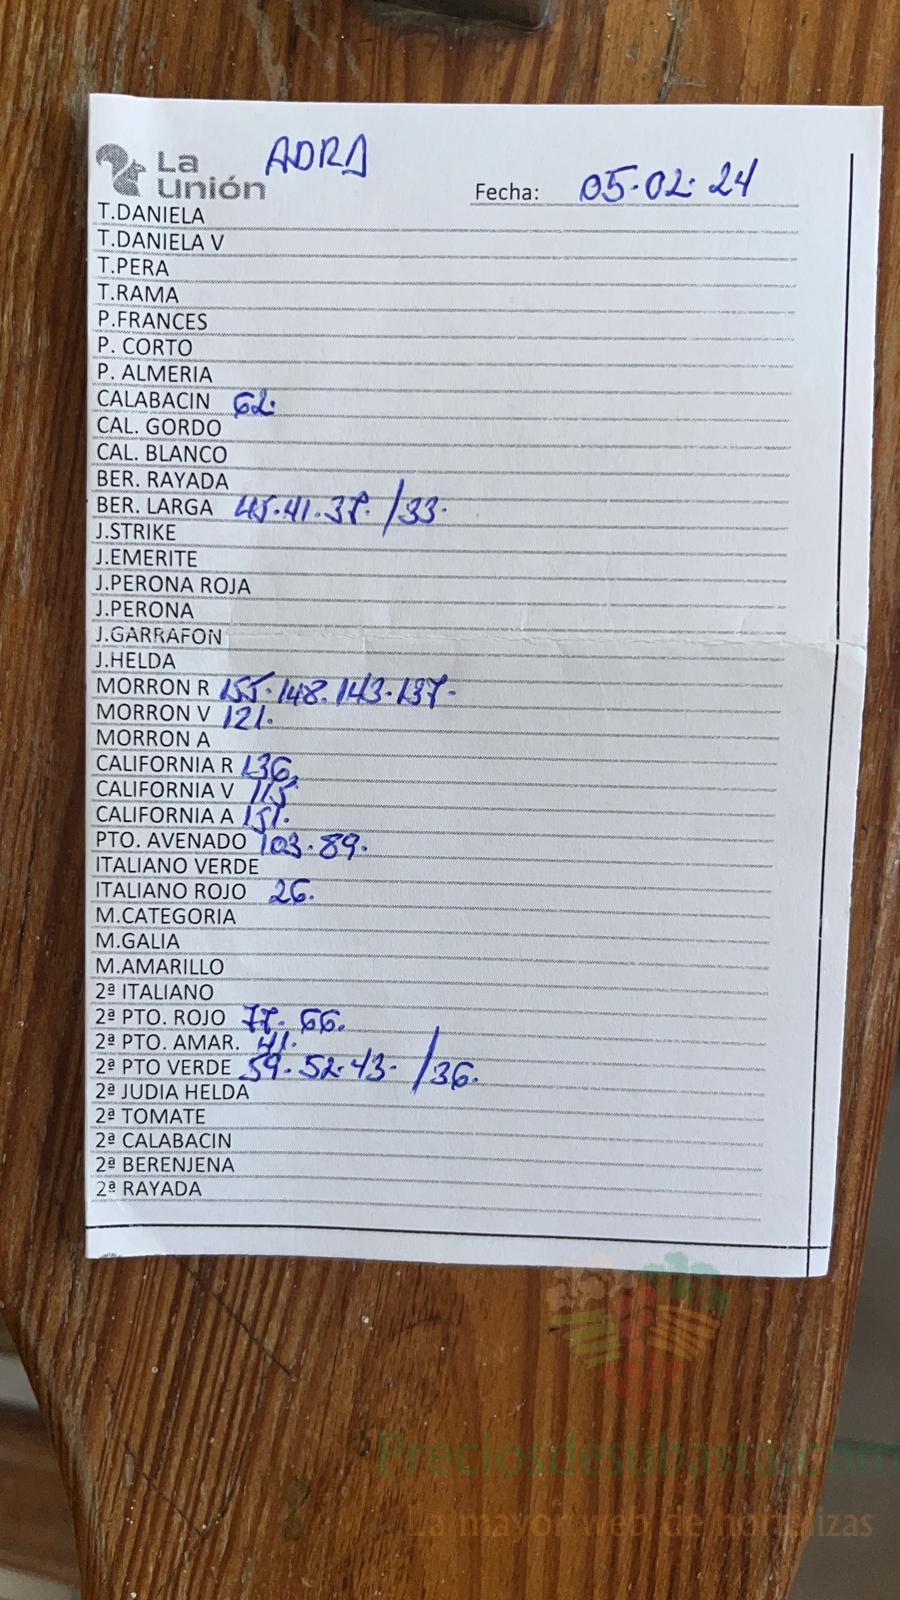 La Unión ADRA Fecha: 05.02.24
T.DANIELA
T.DANELA V
T.PERA
T.RAMA
P.FRANCES
P. CORTO
P. ALMERIA
CALABACIN 62.
CAL. GORDO
CAL. BLANCO
BER. RAYADA
BER. LARGA 45.41.38. /33.
J.STRIKE
J.EMERITE
J.PERONA ROJA
J.PERONA
J.GARRAFON
J.HELDA
MORRON R 155.148.143.137.
MORRON V 121.
MORRON A
CALIFORNIA R 136.
CALIFORNIA V 115
CALIFORNIA A 151.
PTO. AVENADO 103.89.
ITALIANO VERDE
ITALIANO ROJO 26.
M.CATEGORIA
M.GALIA
M.AMARILLO
2ª ITALIANO
2ª PTO. ROJO 77. 66.
2ª PTO. AMAR. 41.
2ª PTO VERDE 59.52.43. /36.
2ª JUDIA HELDA
2ª TOMATE
2ª CALABACIN
2ª BERENJENA
2ª RAYADA
Preciosdesubasta.com
La mayor web de hortalizas